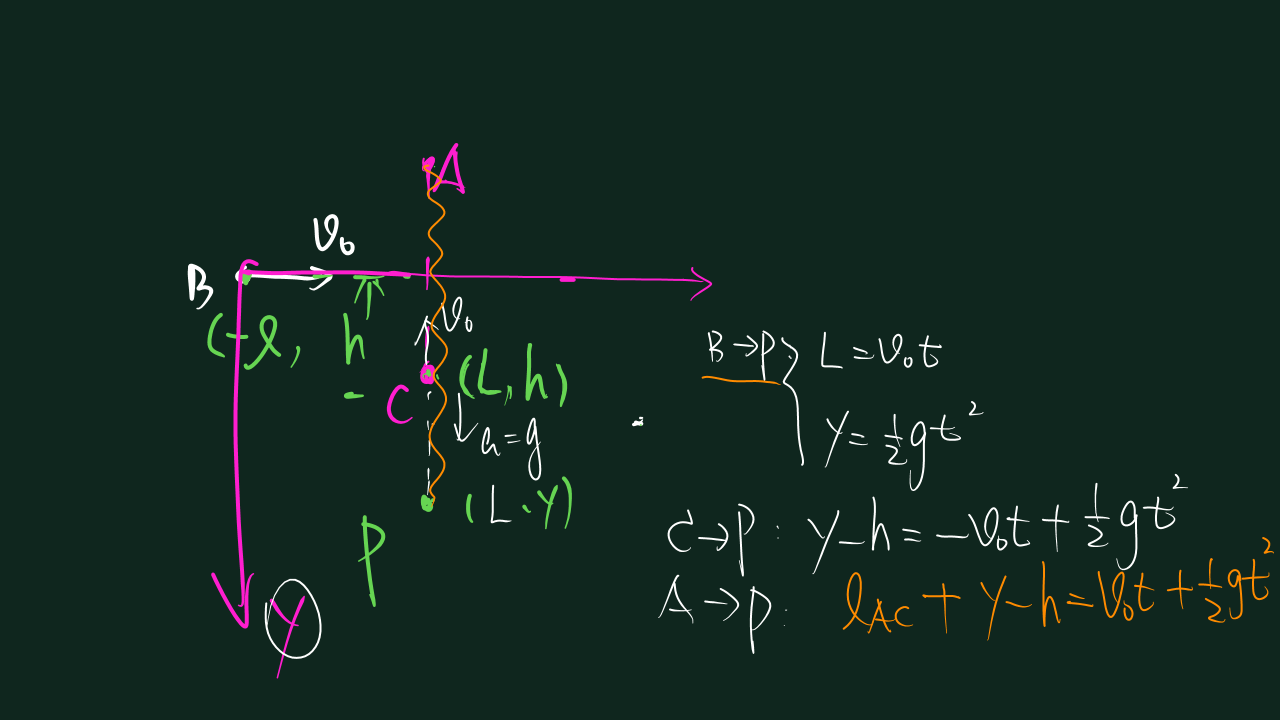 A
v₀
B
(-l, h
v₀
C
(L, h)
a=g
(L, Y)
P
Y
B→P { L=v₀t
Y=½gt²
C→P: Y-h=-v₀t+½gt²
A→P: l_AC+Y-h=v₀t+½gt²